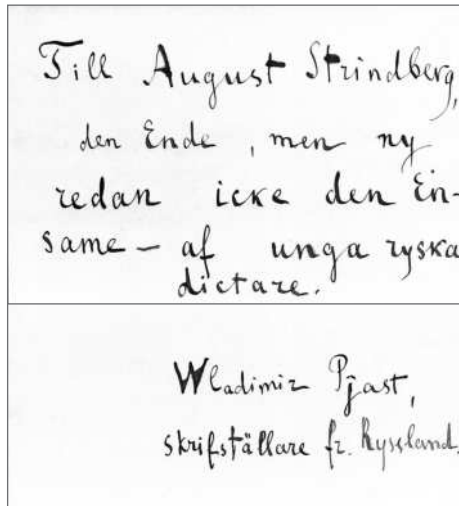 Till August Strindberg,
den Ende, men ny
redan icke den En-
same — af unga ryska
dictare.
Wladimir Pjast,
skrifställare fr. Ryssland.